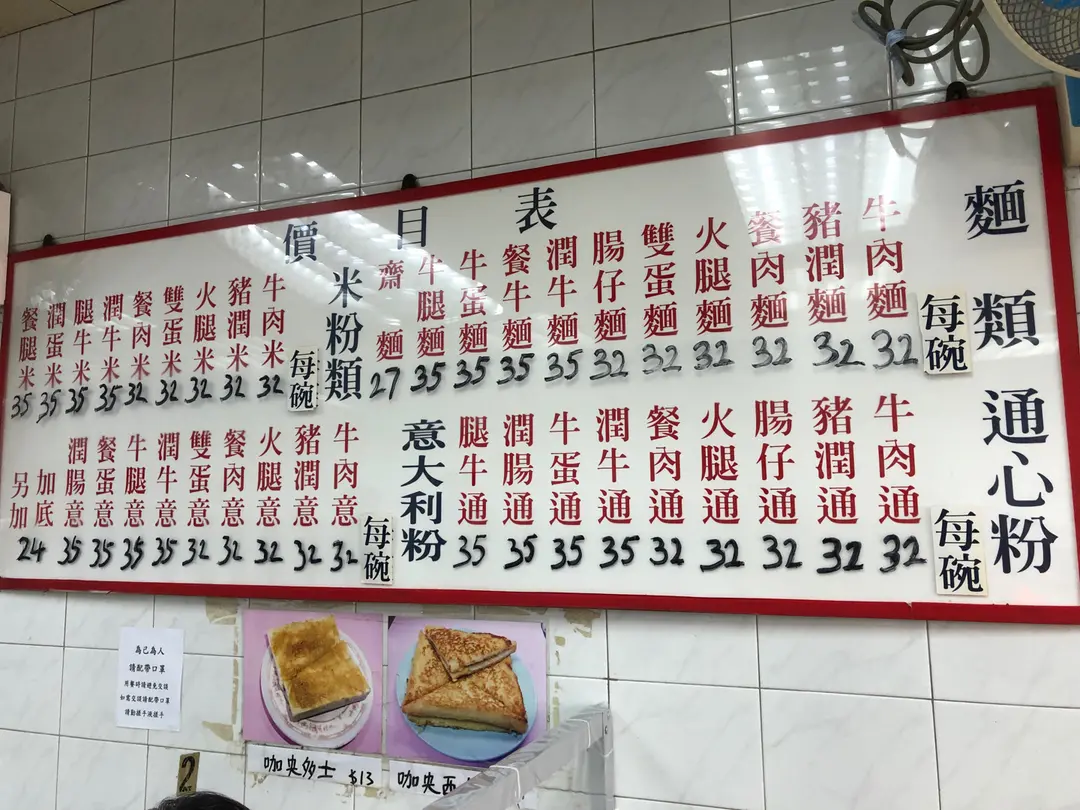 價目表
麵類
每碗
牛肉麵 32
豬潤麵 32
餐肉麵 32
火腿麵 32
雙蛋麵 32
腸仔麵 32
潤牛麵 35
餐牛麵 35
牛蛋麵 35
牛腿麵 35
齋麵 27
米粉類
每碗
牛肉米 32
豬潤米 32
火腿米 32
雙蛋米 32
餐肉米 32
潤牛米 35
腿牛米 35
潤蛋米 35
餐腿米 35
通心粉
每碗
牛肉通 32
豬潤通 32
腸仔通 32
火腿通 32
餐肉通 32
潤牛通 35
牛蛋通 35
潤腸通 35
腿牛通 35
意大利粉
每碗
牛肉意 32
豬潤意 32
火腿意 32
餐肉意 32
雙蛋意 32
潤牛意 35
牛腿意 35
餐蛋意 35
潤腸意 35
加底
另加
24
為己為人
請配帶口罩
用餐時請避免交談
如需交談請配帶口罩
請勤搓手液搓手
咖央多士 $13
咖央西
2